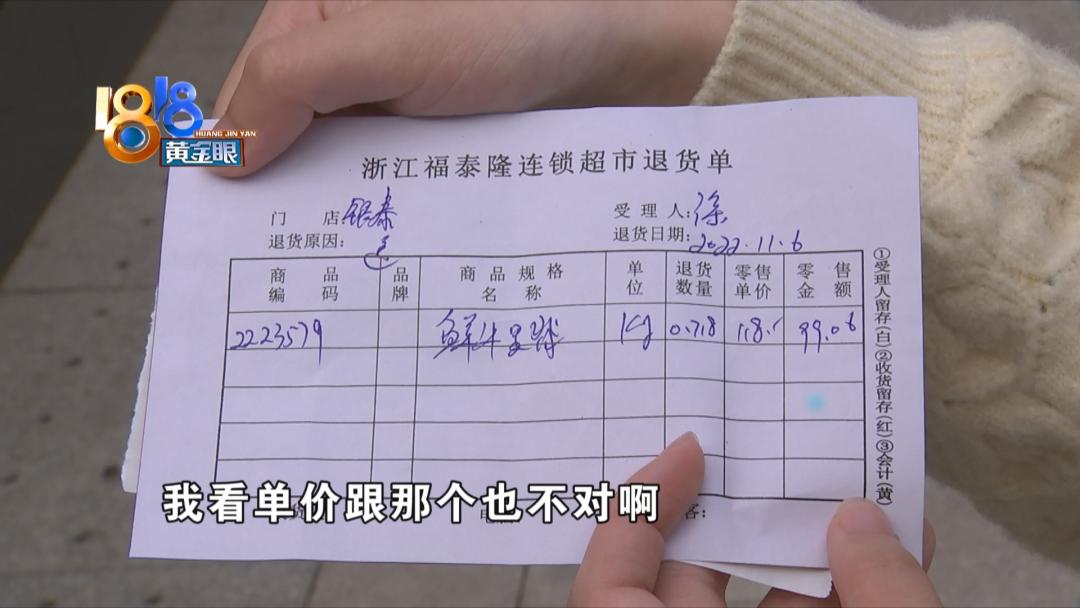 1818
HUANG JIN YAN
黄金眼
浙江福泰隆连锁超市退货单
门店:银泰
受理人:徐
退货原因:
退货日期:2022.11.6
商品编码 品牌 商品规格名称 单位 退货数量 零售单价 零售金额
2223579 鲜牛 Kg 0.718 99.06
①受理人留存(白)②收货留存(红)③会计(黄)
客:
我看单价跟那个也不对啊